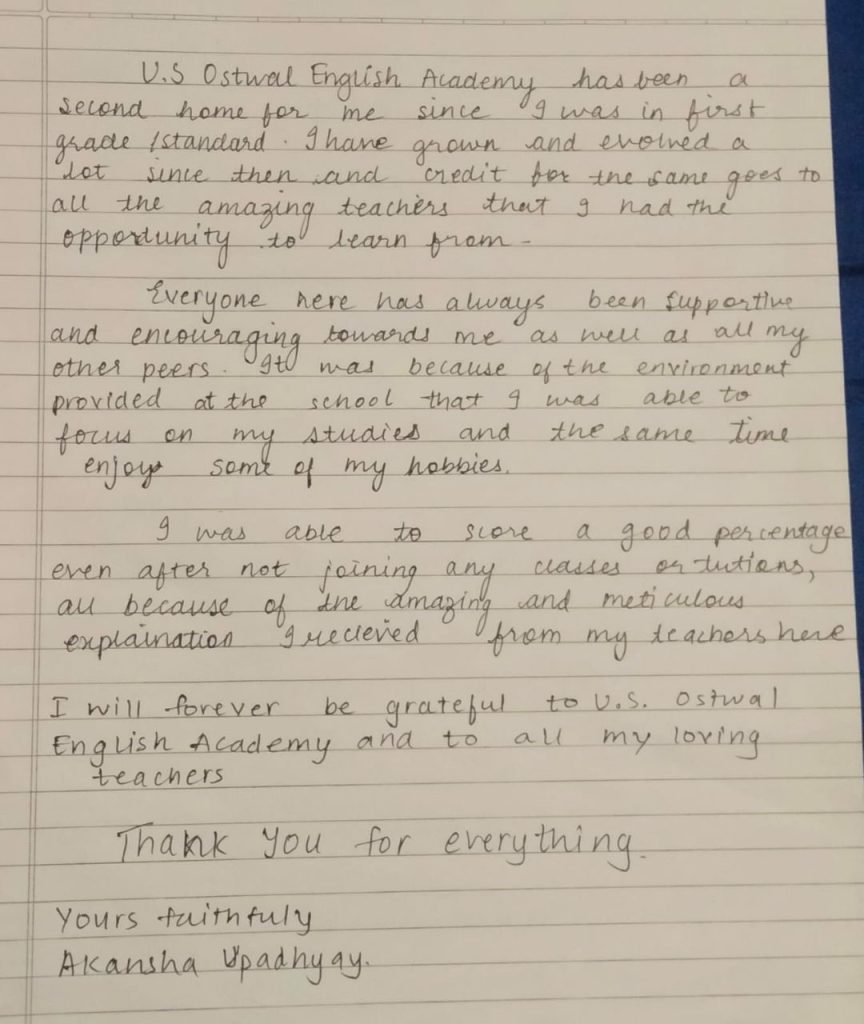 U.S Ostwal English Academy has been a
second home for me since I was in first
grade /standard. I have grown and evolved a
lot since then and credit for the same goes to
all the amazing teachers that I had the
opportunity to learn from -
Everyone here has always been supportive
and encouraging towards me as well as all my
other peers. It was because of the environment
provided at the school that I was able to
focus on my studies and the same time
enjoy some of my hobbies.
I was able to score a good percentage
even after not joining any classes or tutions,
all because of the amazing and meticulous
explaination I recieved from my teachers here
I will forever be grateful to U.S. Ostwal
English Academy and to all my loving
teachers
Thank you for everything.
Yours faithfuly
Akansha Upadhyay.